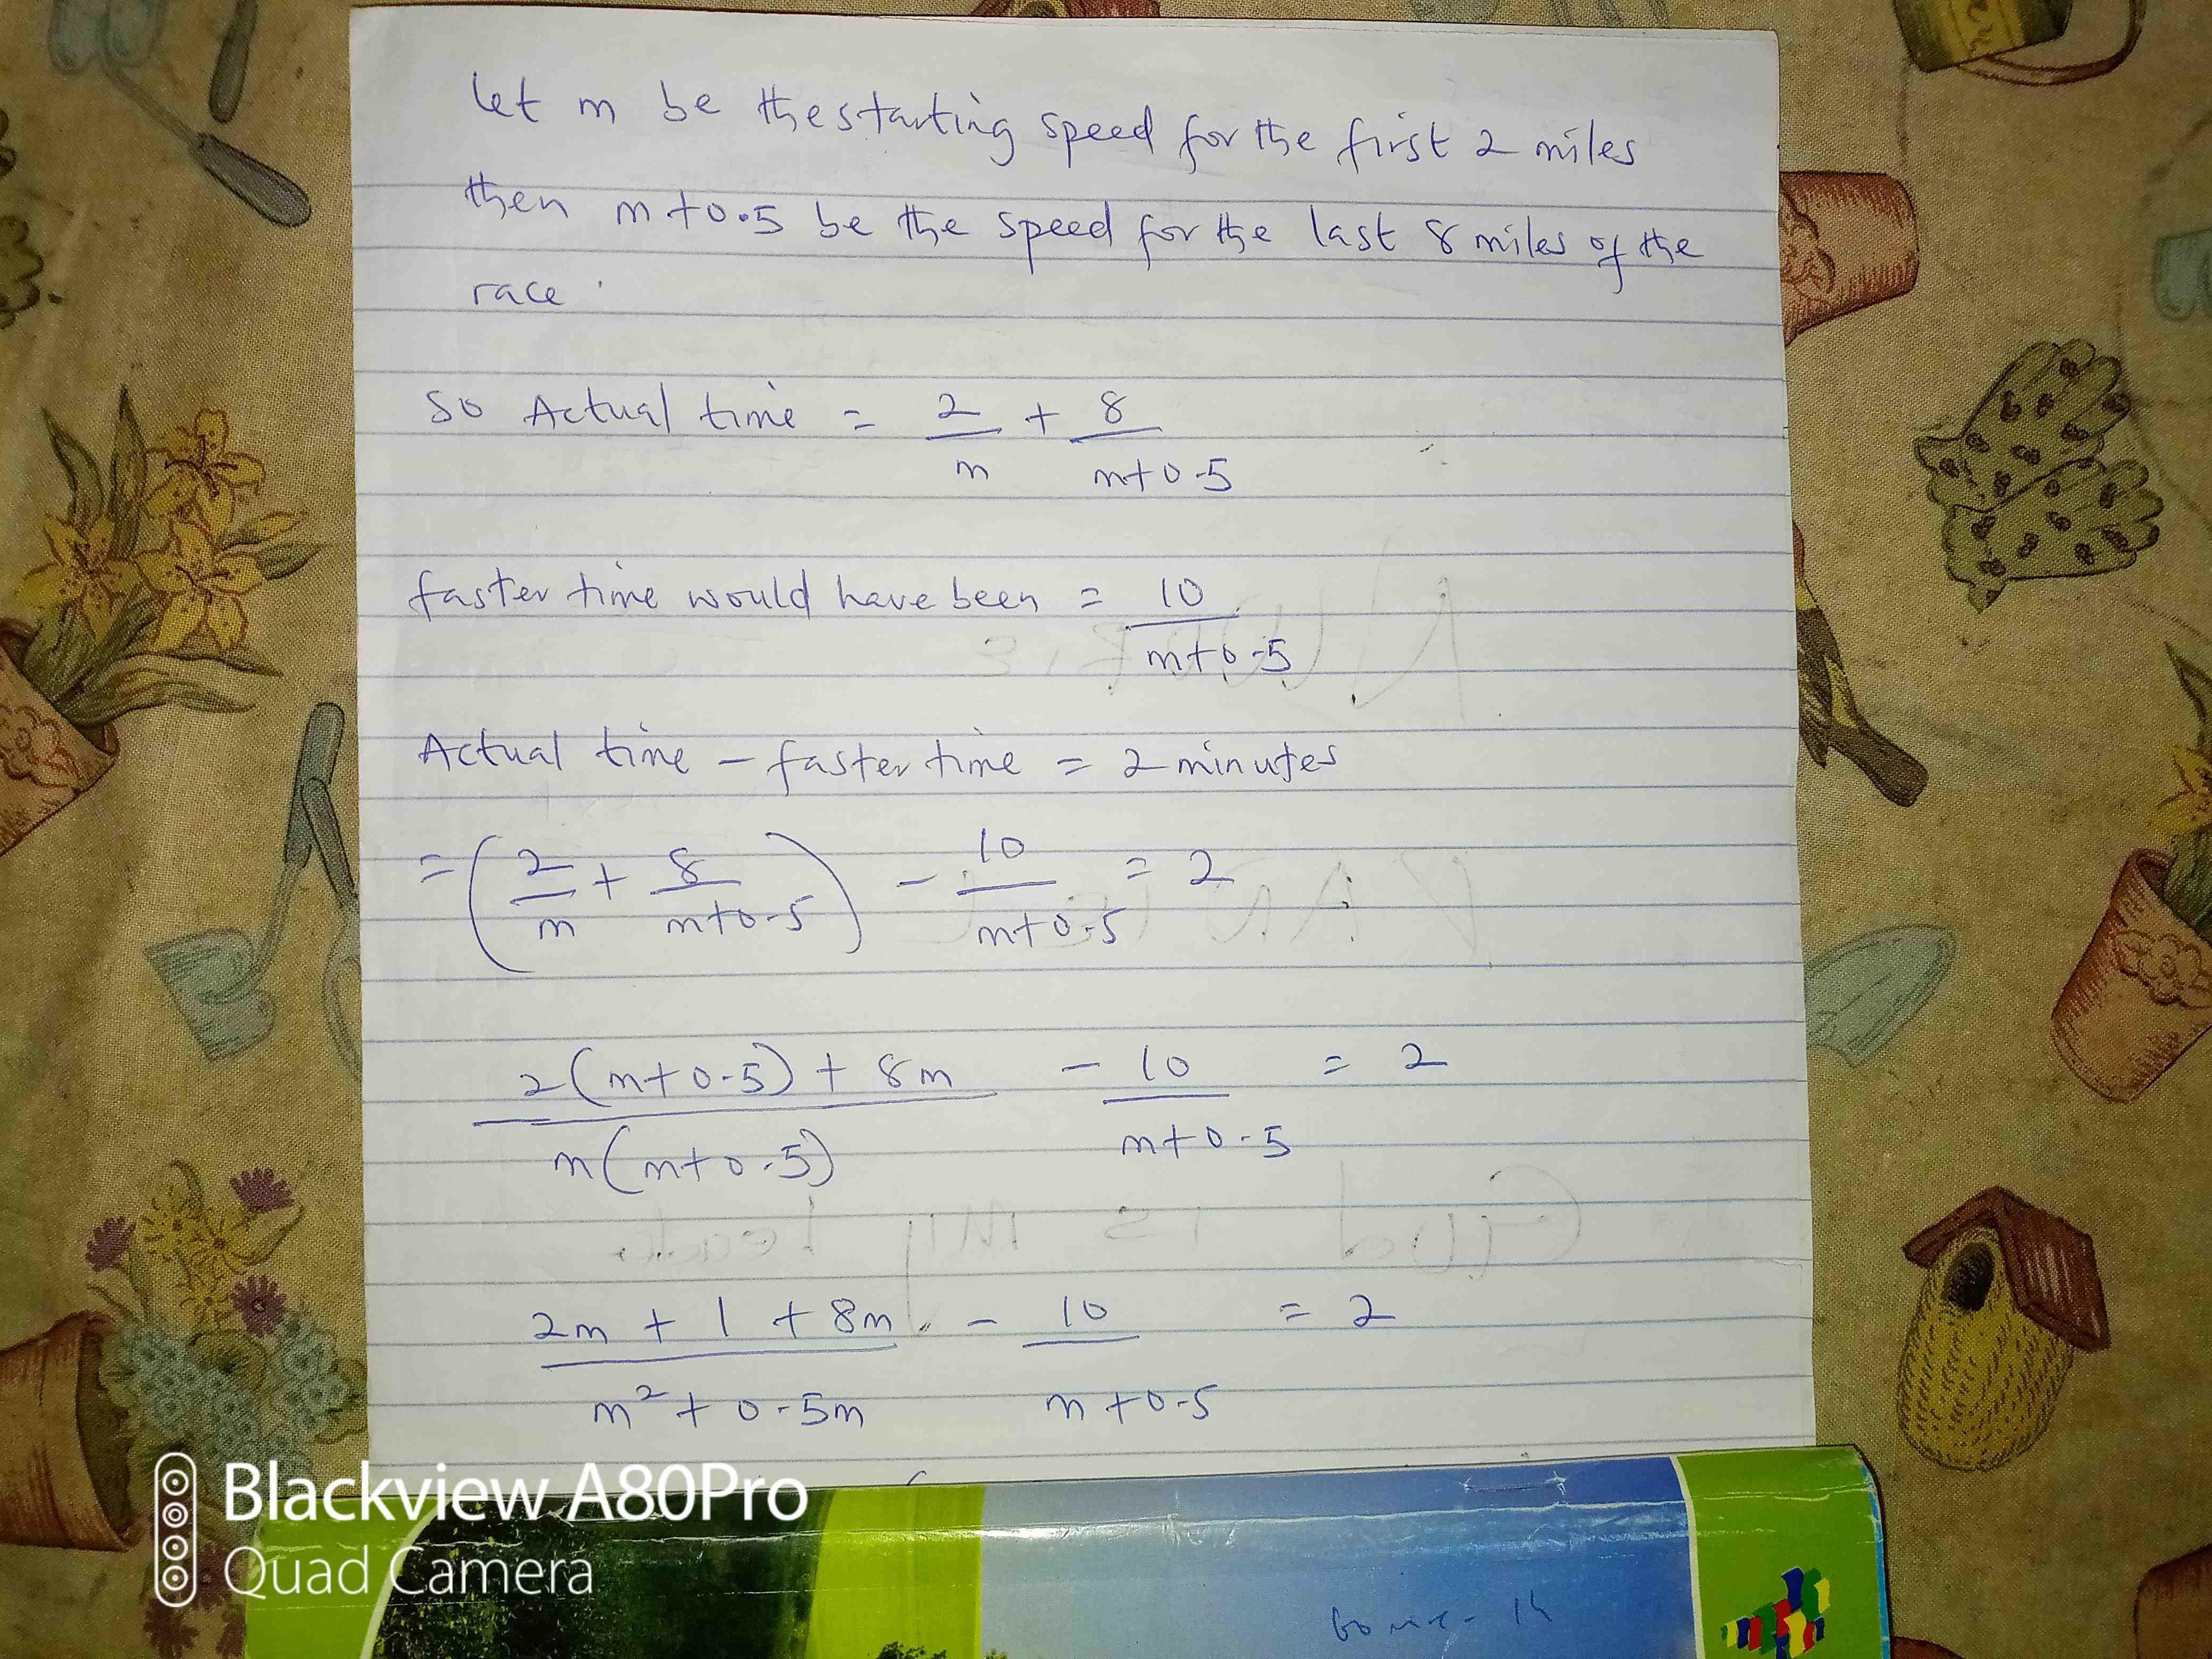 let m be the starting speed for the first 2 miles
then m+0.5 be the speed for the last 8 miles of the
race.
so Actual time = 2/m + 8/m+0.5
faster time would have been = 10/m+0.5
Actual time - faster time = 2 minutes
= (2/m + 8/m+0.5) - 10/m+0.5 = 2
2(m+0.5) + 8m/m(m+0.5) - 10/m+0.5 = 2
2m + 1 + 8m/m²+0.5m - 10/m+0.5 = 2
Blackview A80Pro
Quad Camera